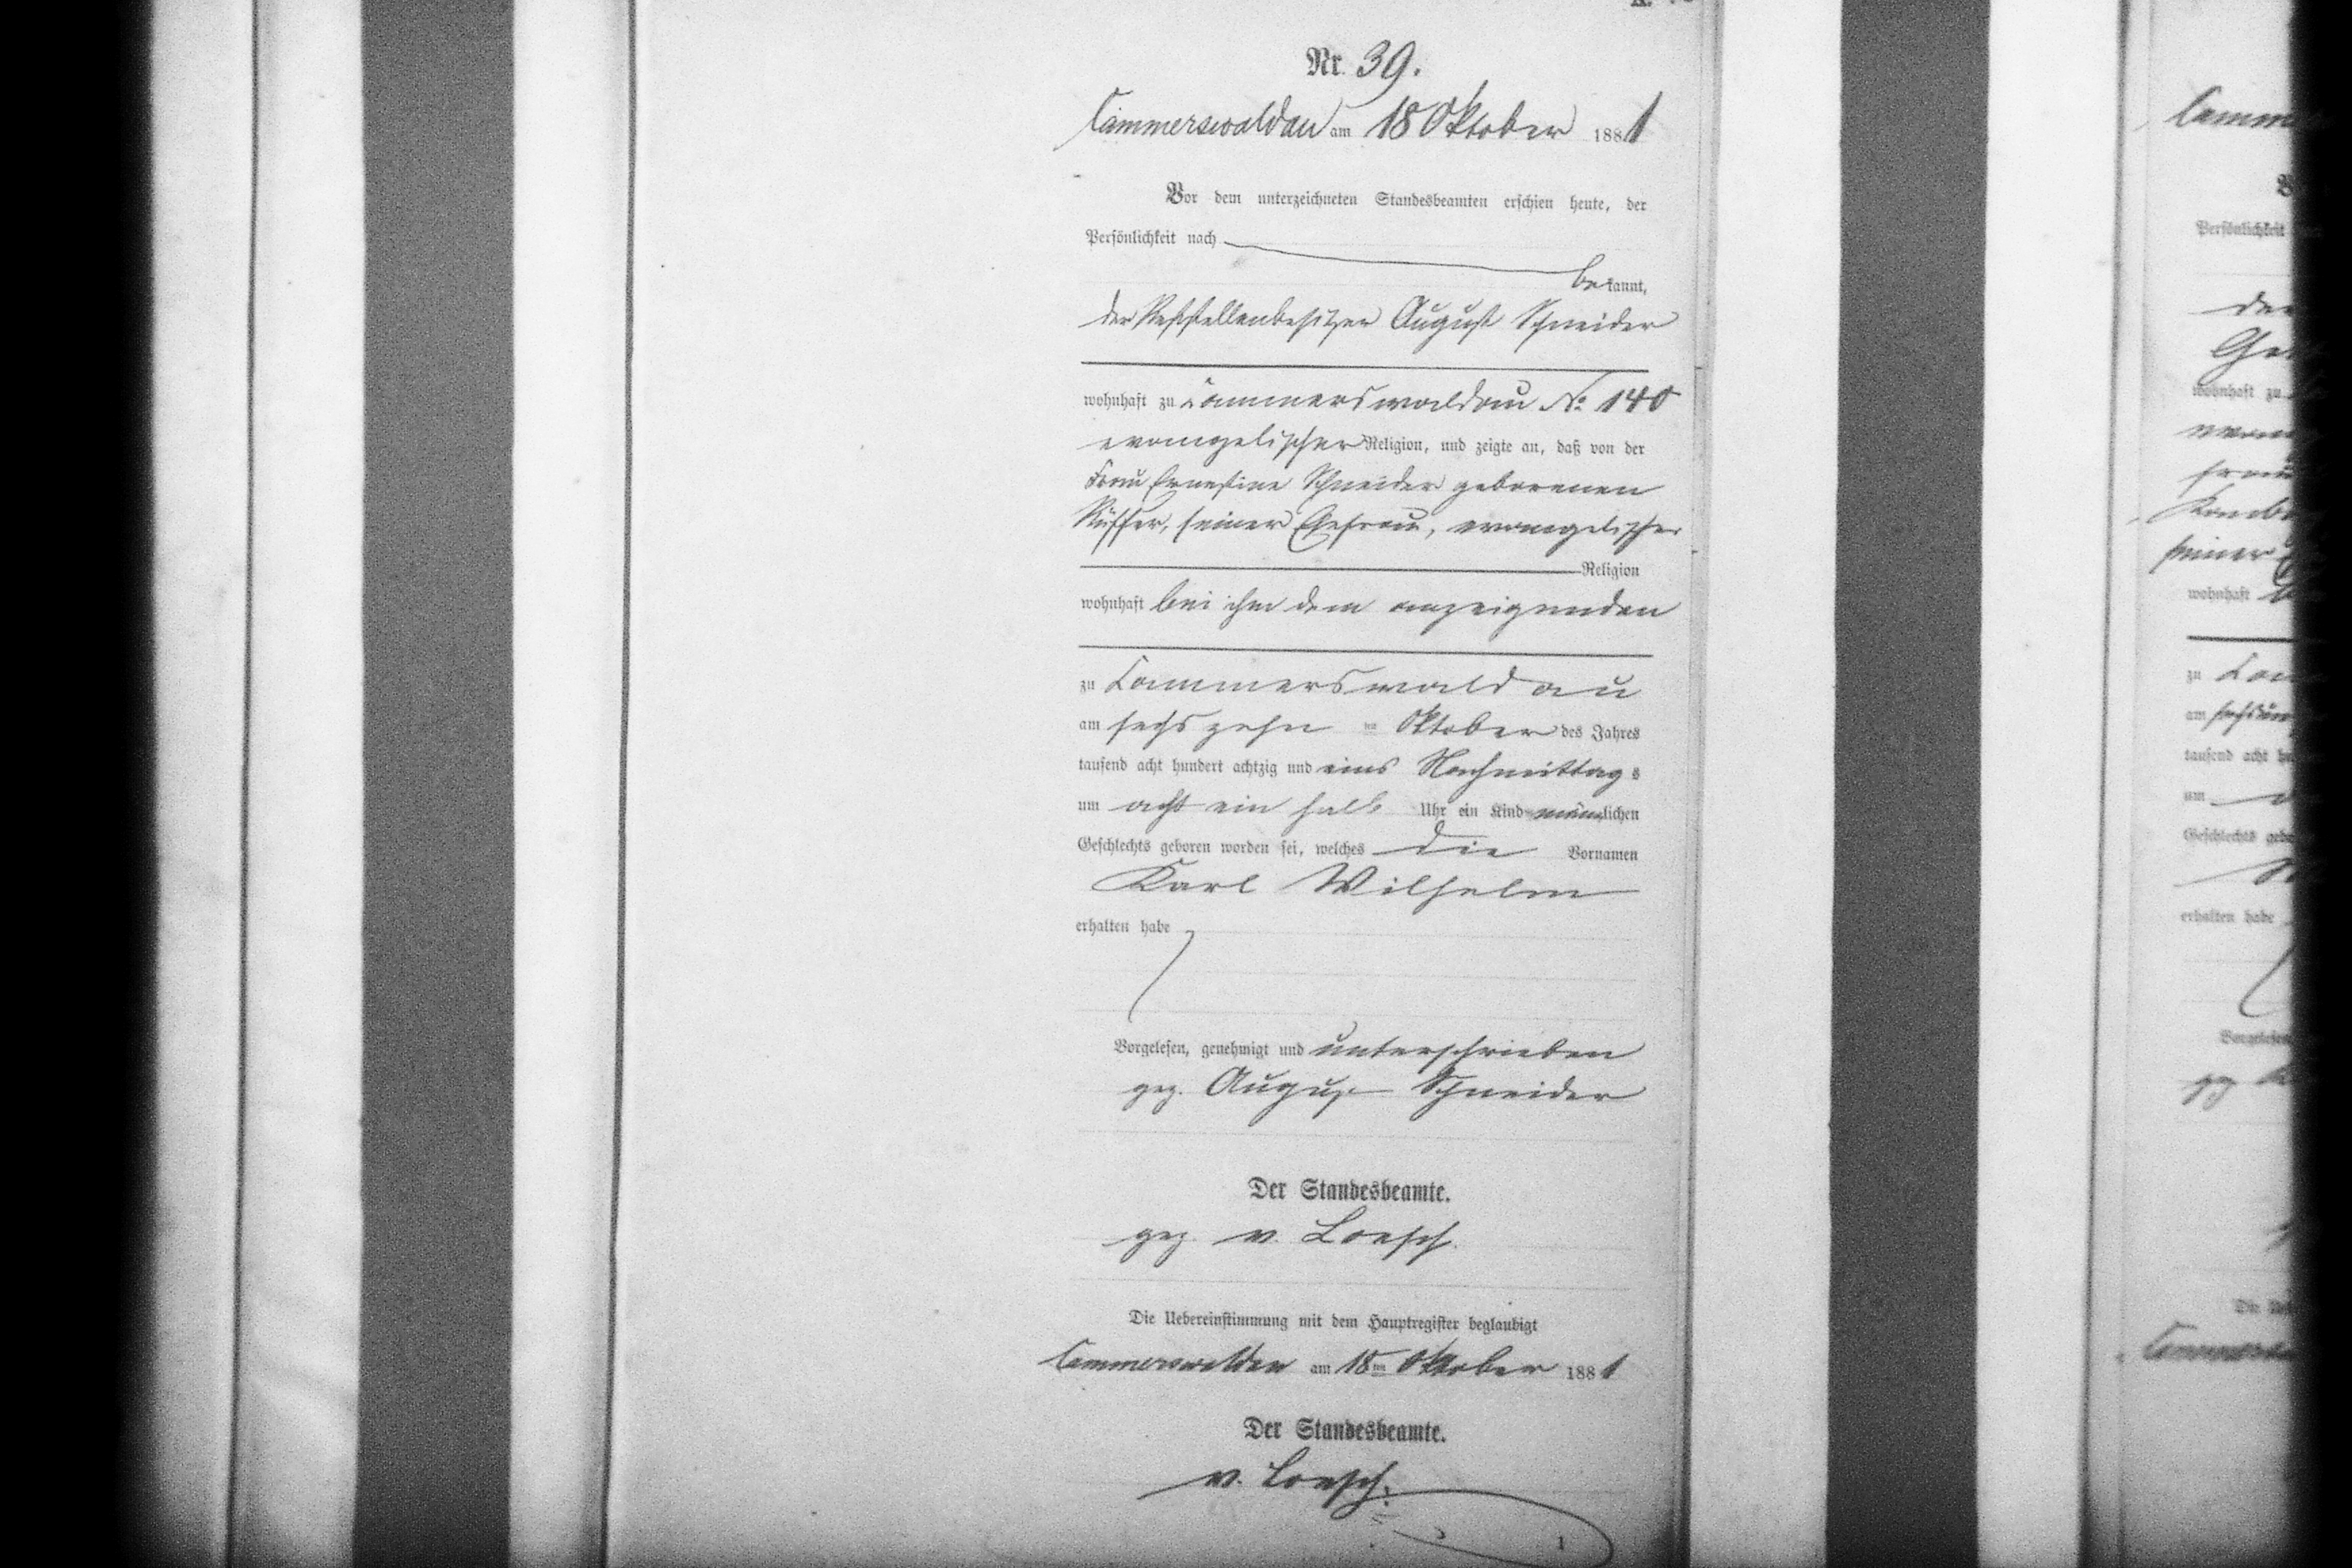 Nr. 39.
Cammerswaldau am 18 Oktober 1881
Vor dem unterzeichneten Standesbeamten erschien heute, der
Persönlichkeit nach
bekannt,
der Reststellenbesitzer August Schneider
wohnhaft zu Cammerswaldau No 140
evangelischer Religion, und zeigte an, daß von der
Frau Ernestine Schneider geborenen
Rüffer, seiner Ehefrau, evangelischer
Religion
wohnhaft bei ihm dem anzeigenden
zu Cammerswaldau
am sechszehn ten Oktober des Jahres
tausend acht hundert achtzig und eins Nachmittags
um acht ein halb Uhr ein Kind männlichen
Geschlechts geboren worden sei, welches die Vornamen
Karl Wilhelm
erhalten habe
Vorgelesen, genehmigt und unterschrieben
gez. August Schneider
Der Standesbeamte.
gez. v. Loesch.
Die Uebereinstimmung mit dem Hauptregister beglaubigt
Cammerswaldau am 18ten Oktober 1881
Der Standesbeamte.
v. Loesch.
1